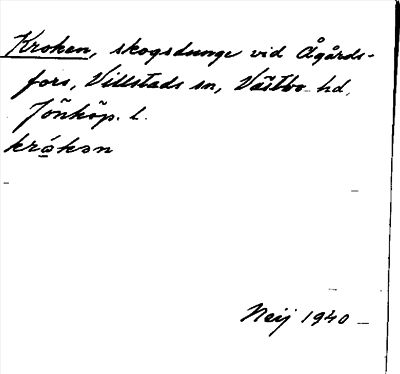 Kroken, skogsdunge vid Ågårds-
fors, Villstads sn, Västbo hd,
Jönköp. l.
krókən
Neij 1940